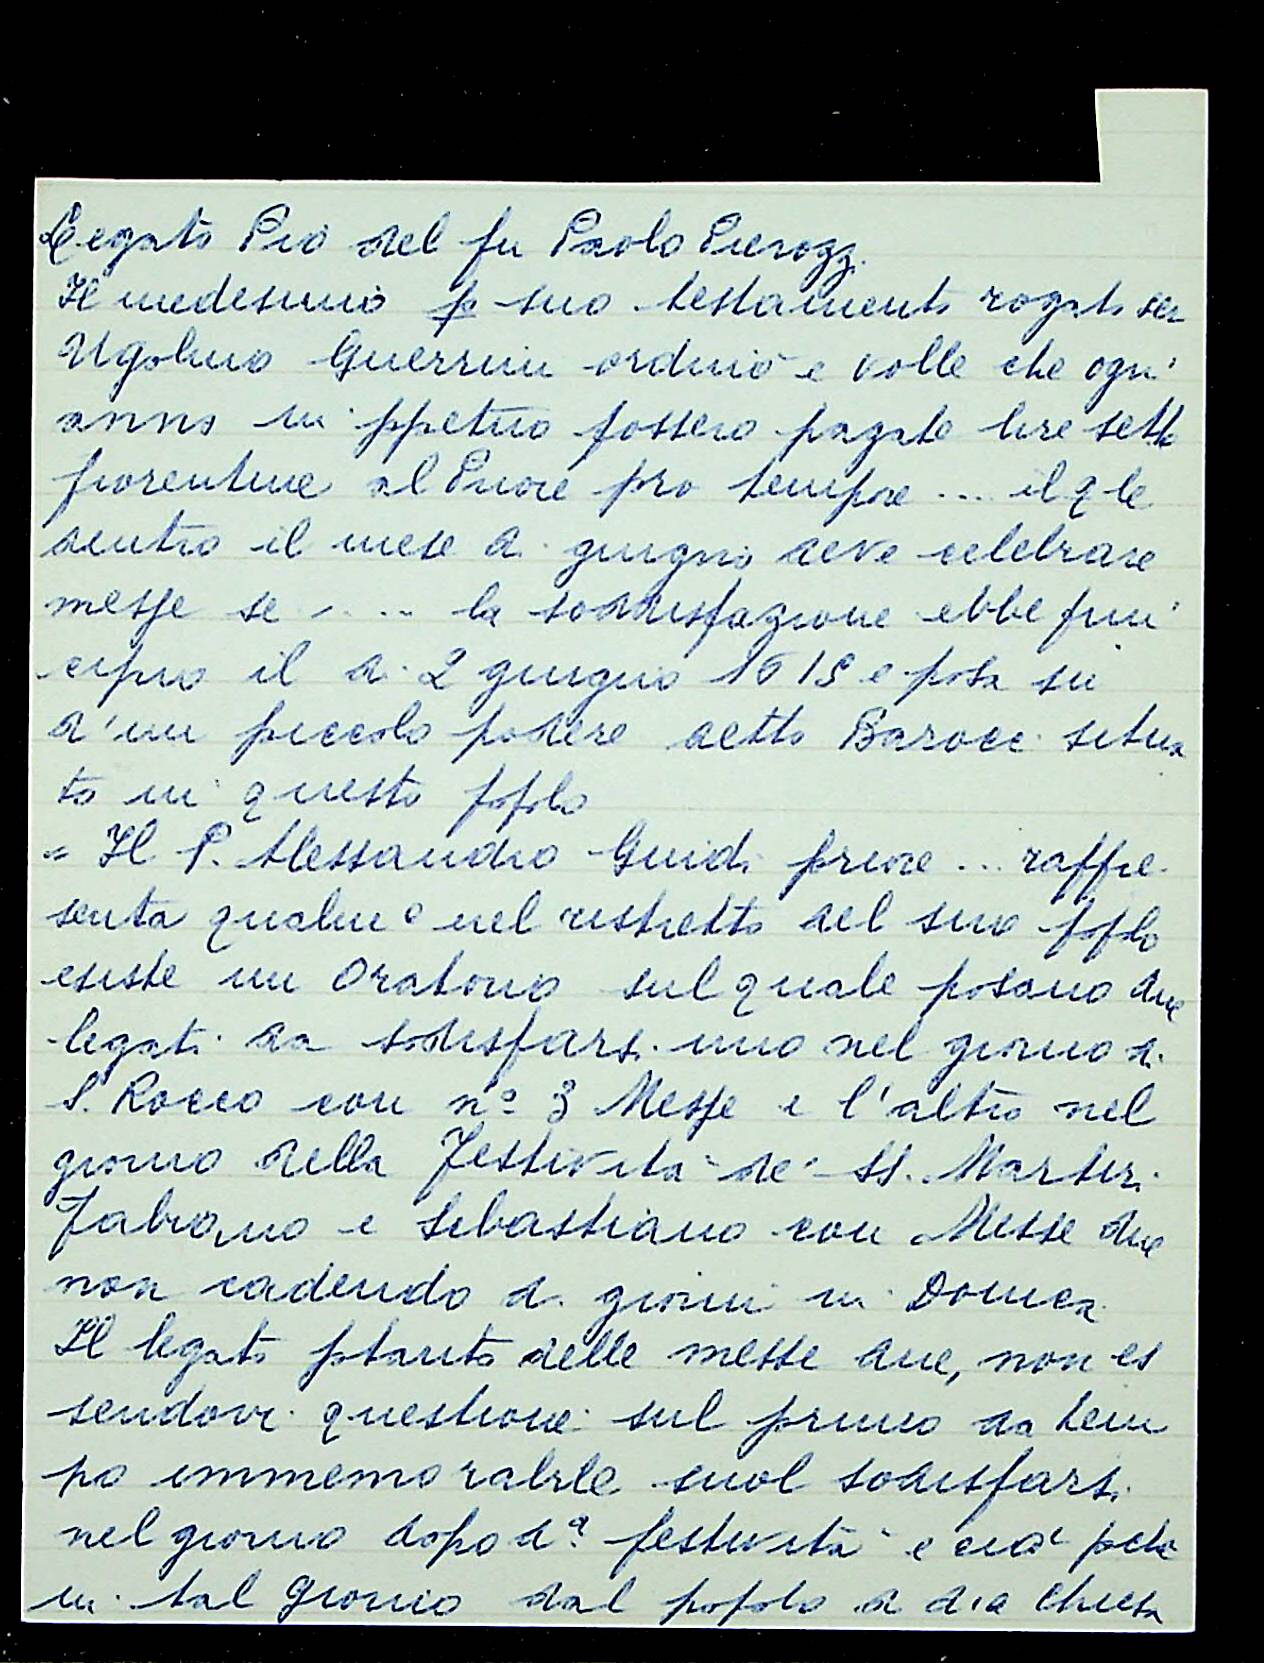 Legato Pio del fu Paolo Pierozzi
Il medesimo p suo testamento rogato ser
Ugolino Guerrini ordinò e volle che ogni
anno in ppetuo fossero pagate lire sette
fiorentine al Priore pro tempore .... il qle
dentro il mese di giugno deve celebrare
messe se ..... la soddisfazione ebbe prin
cipio il dì 2 giugno 1615 e posa su
d'un piccolo podere detto Barocci situa
to in questo popolo
= Il P. Alessandro Guidi priore ... rappre
senta qualm e nel ristretto del suo popolo
esiste un Oratorio sul quale posano due
legati da sodisfarsi uno nel giorno di
S. Rocco con nº 3 Messe e l'altro nel
giorno della Festività de' SS. Martiri
Fabiano e Sebastiano con Messe due
non cadendo di giorni in Domca
Il legato ptanto delle messe due, non es
sendovi questione sul primo da tem
po immemorabile suol sodisfarsi
nel giorno dopo dª festività e ciò pchè
in tal giorno dal popolo di d.a Chiesa